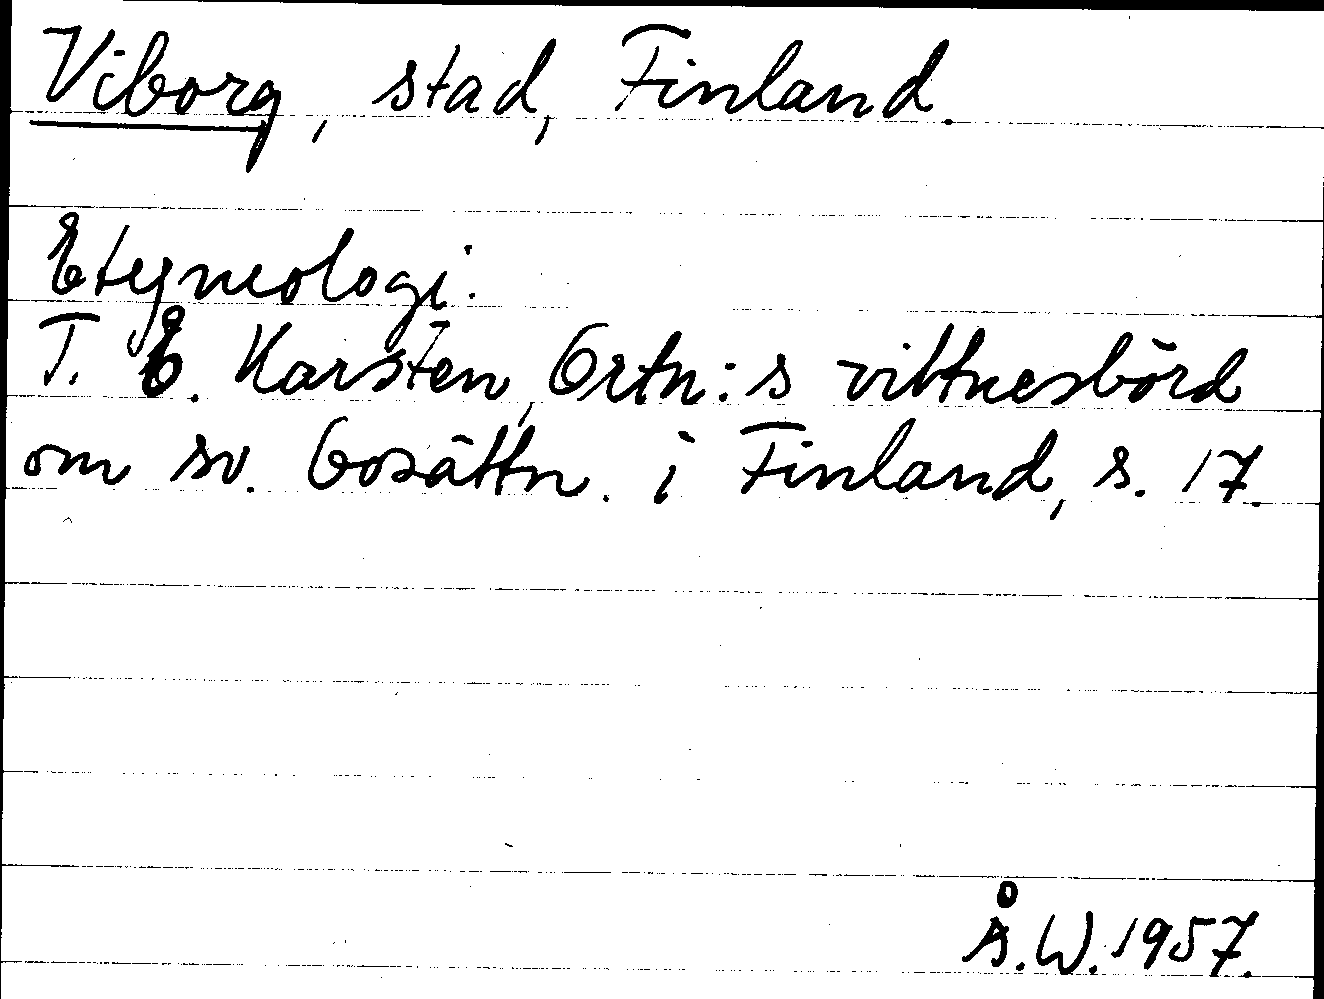 Viborg, stad, Finland.
Etymologi.
T. E. Karsten, Ortn:s vittnesbörd
om sv. bosättn. i Finland, s. 17.
Å.W. 1957.